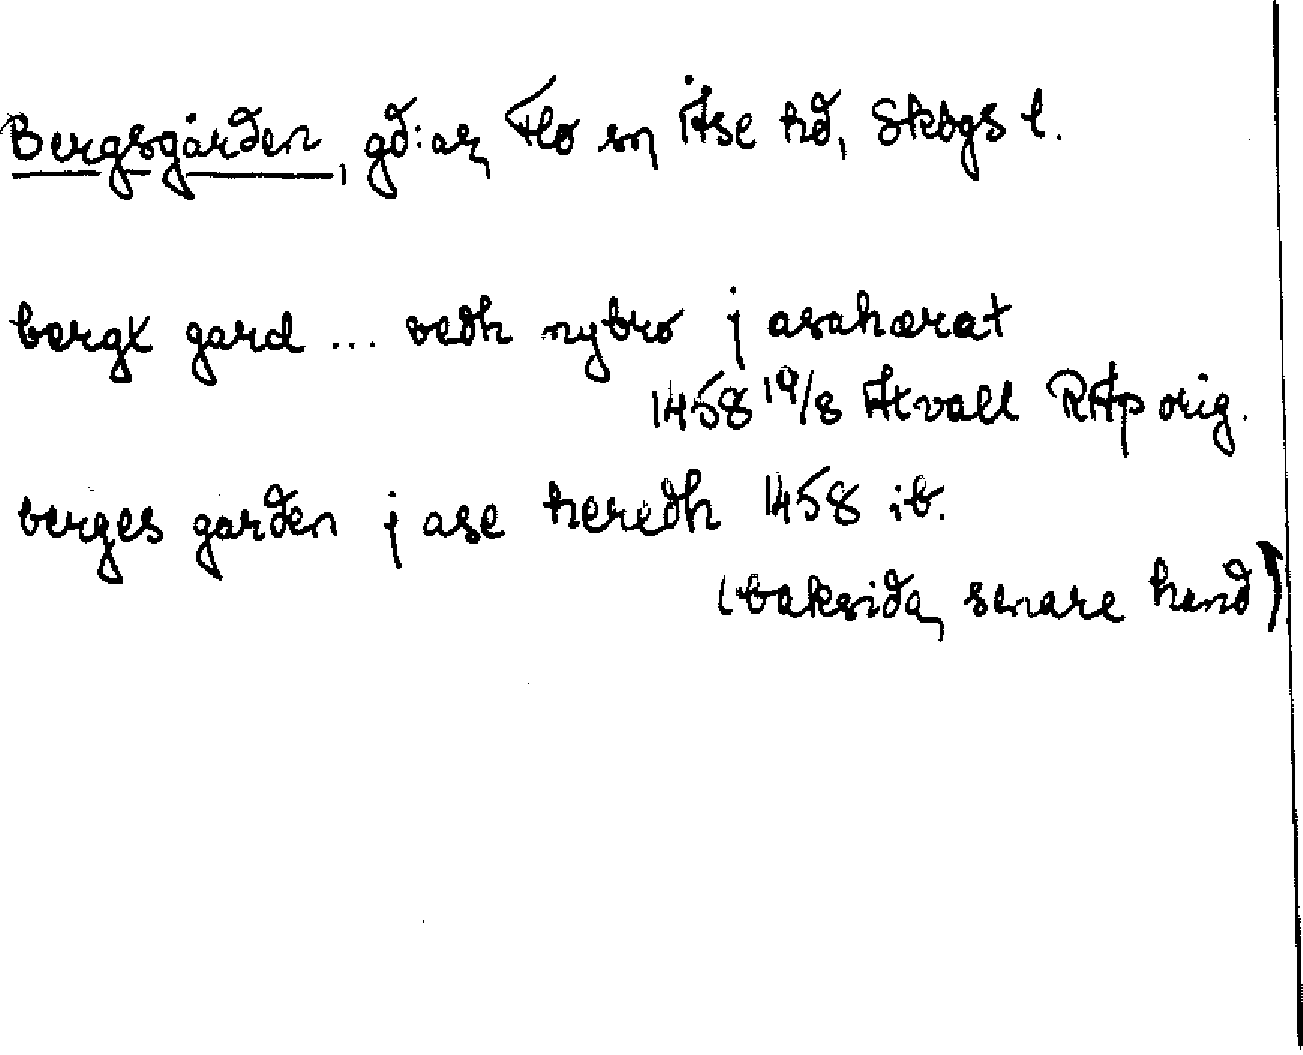 Bergsgården, gd:ar, Flo sn Åse hd, Skbgs l.
bergx gard ... vedh nybro j asahærat
1458 19/8 Atvall RAp orig.
berges garden j ase heredh 1458 ib.
(baksida, senare hand)